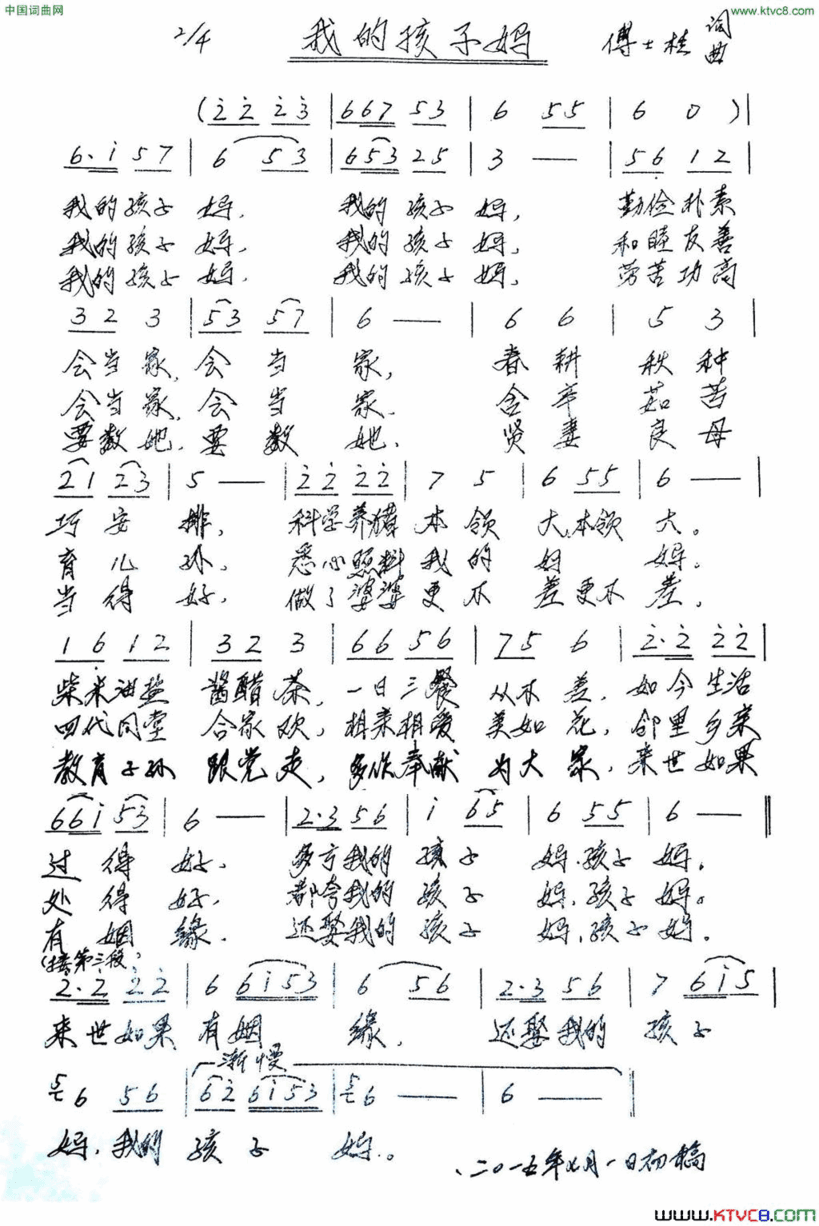 中国词曲网
www.ktvc8.com
2/4 我的孩子妈 傅士桂 词曲
(2̇ 2̇ 2̇ 3̇ | 6 6 7 5 3 | 6 5 5 | 6 0 )|
6· i 5 7 | 6 5 3 | 6 5 3 2 5 | 3 — | 5 6 1 2 |
我的孩子妈, 我的孩子妈, 勤俭朴素
我的孩子妈, 我的孩子妈, 和睦友善
我的孩子妈, 我的孩子妈, 劳苦功高
3 2 3 | 5 3 5 7 | 6 — | 6 6 | 5 3 |
会当家,会当家, 春耕秋种
会当家,会当家. 含辛茹苦
要数她.要数她. 贤妻良母
2 1 2 3 | 5 — | 2̇ 2̇ 2̇ 2̇ | 7 5 | 6 5 5 | 6 — |
巧安排, 科学养猪本领大,本领大。
育儿孙. 悉心照料我的妈妈。
当得好, 做了婆婆更不差更不差,
1 6 1 2 | 3 2 3 | 6 6 5 6 | 7 5 6 | 2̇· 2̇ 2̇ 2̇ |
柴米油盐酱醋茶,一日三餐从不差,如今生活
四代同堂合家欢,相亲相爱美如花,邻里乡亲
教育子孙跟党走,多做奉献为大家,来世如果
6 6 i 5 3 | 6 — | 2·3 5 6 | i 6 5 | 6 5 5 | 6 — ‖
过得好. 多亏我的孩子妈.孩子妈.
处得好. 都夸我的孩子妈.孩子妈。
有姻缘. 还娶我的孩子妈,孩子妈.
(接第三段)
2̇· 2̇ 2̇ 2̇ | 6 6 i 5 3 | 6 5 6 | 2·3 5 6 | 7 6 i 5 |
来世如果有姻缘, 还娶我的孩子
渐慢
6 5 6 | 6 2̇ 6 i 5 3 | 6 — | 6 — ‖
妈,我的孩子妈。
二0一五年七月一日初稿
www.KTVC8.com